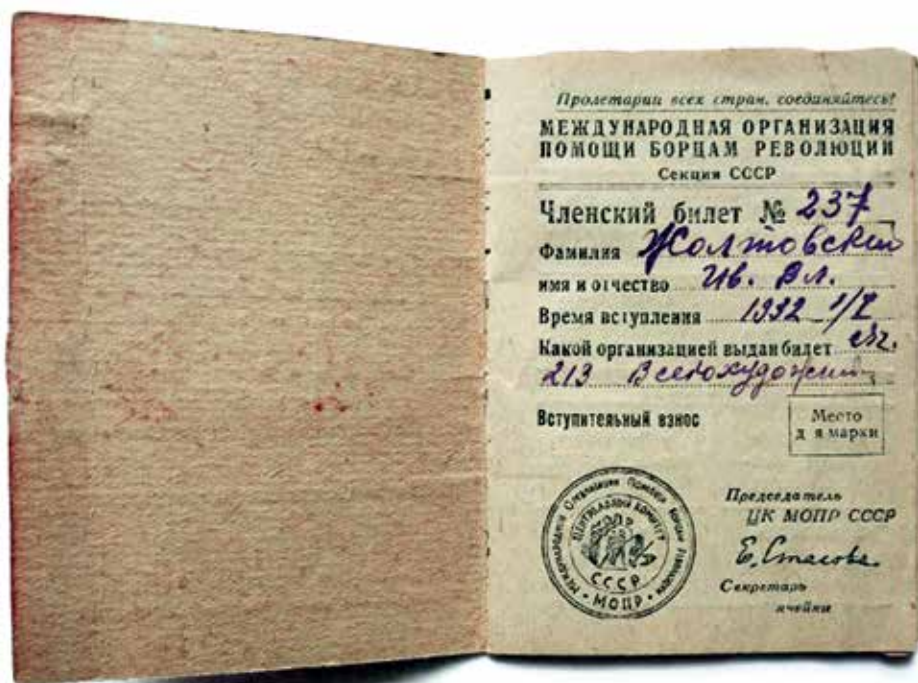 Пролетарии всех стран, соединяйтесь!
МЕЖДУНАРОДНАЯ ОРГАНИЗАЦИЯ
ПОМОЩИ БОРЦАМ РЕВОЛЮЦИИ
Секция СССР
Членский билет № 237
Фамилия Жолтовский
имя и отчество Ив. Вл.
Время вступления 1932 1/I
Какой организацией выдан билет яч.
213 Всекохудожник
Вступительный взнос
Место
д я марки
МЕЖДУНАРОДНАЯ ОРГАНИЗАЦИЯ ПОМОЩИ БОРЦАМ РЕВОЛЮЦИИ
ЦЕНТРАЛЬНЫЙ КОМИТЕТ
СССР
МОПР
Председатель
ЦК МОПР СССР
Е. Стасова
Секретарь
ячейки